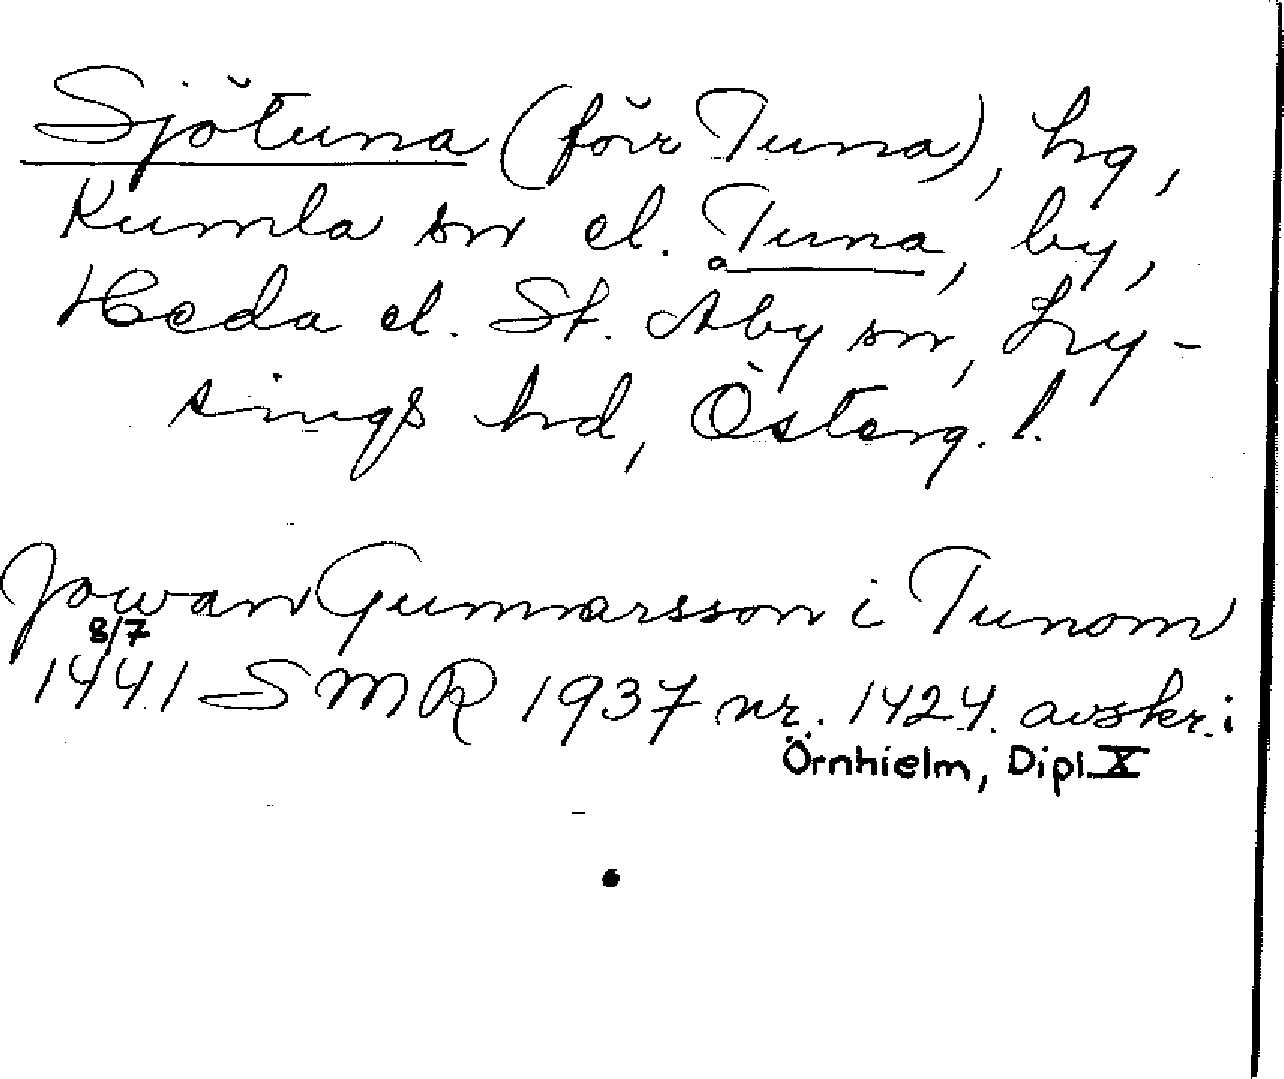 Sjötuna (förr Tuna), hg,
Kumla sn el. Tuna, by,
Heda el. St. Åby sn, Ly-
sings hd, Österg. l.
Jowan Gunnarsson i Tunom
8/7
1441 SMR 1937 nr. 1424. avskr. i
Örnhielm, Dipl. X